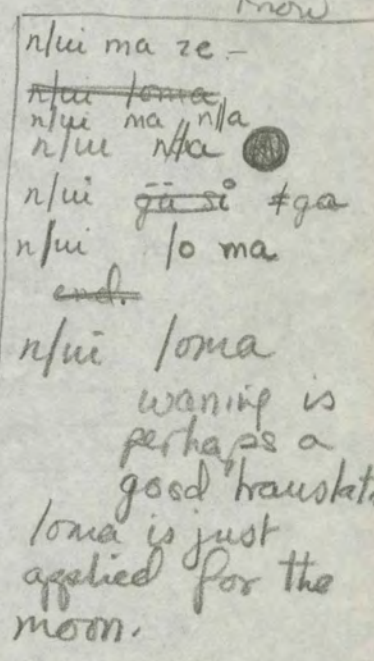 know
n/ui ma ze –
n/ui /oma
n/ui ma n//a
n/ui n//a
n/ui gü si ǂga
n/ui /o ma
end.
n/ui /oma
waning is
perhaps a
good translat
/oma is just
applied for the
moon.